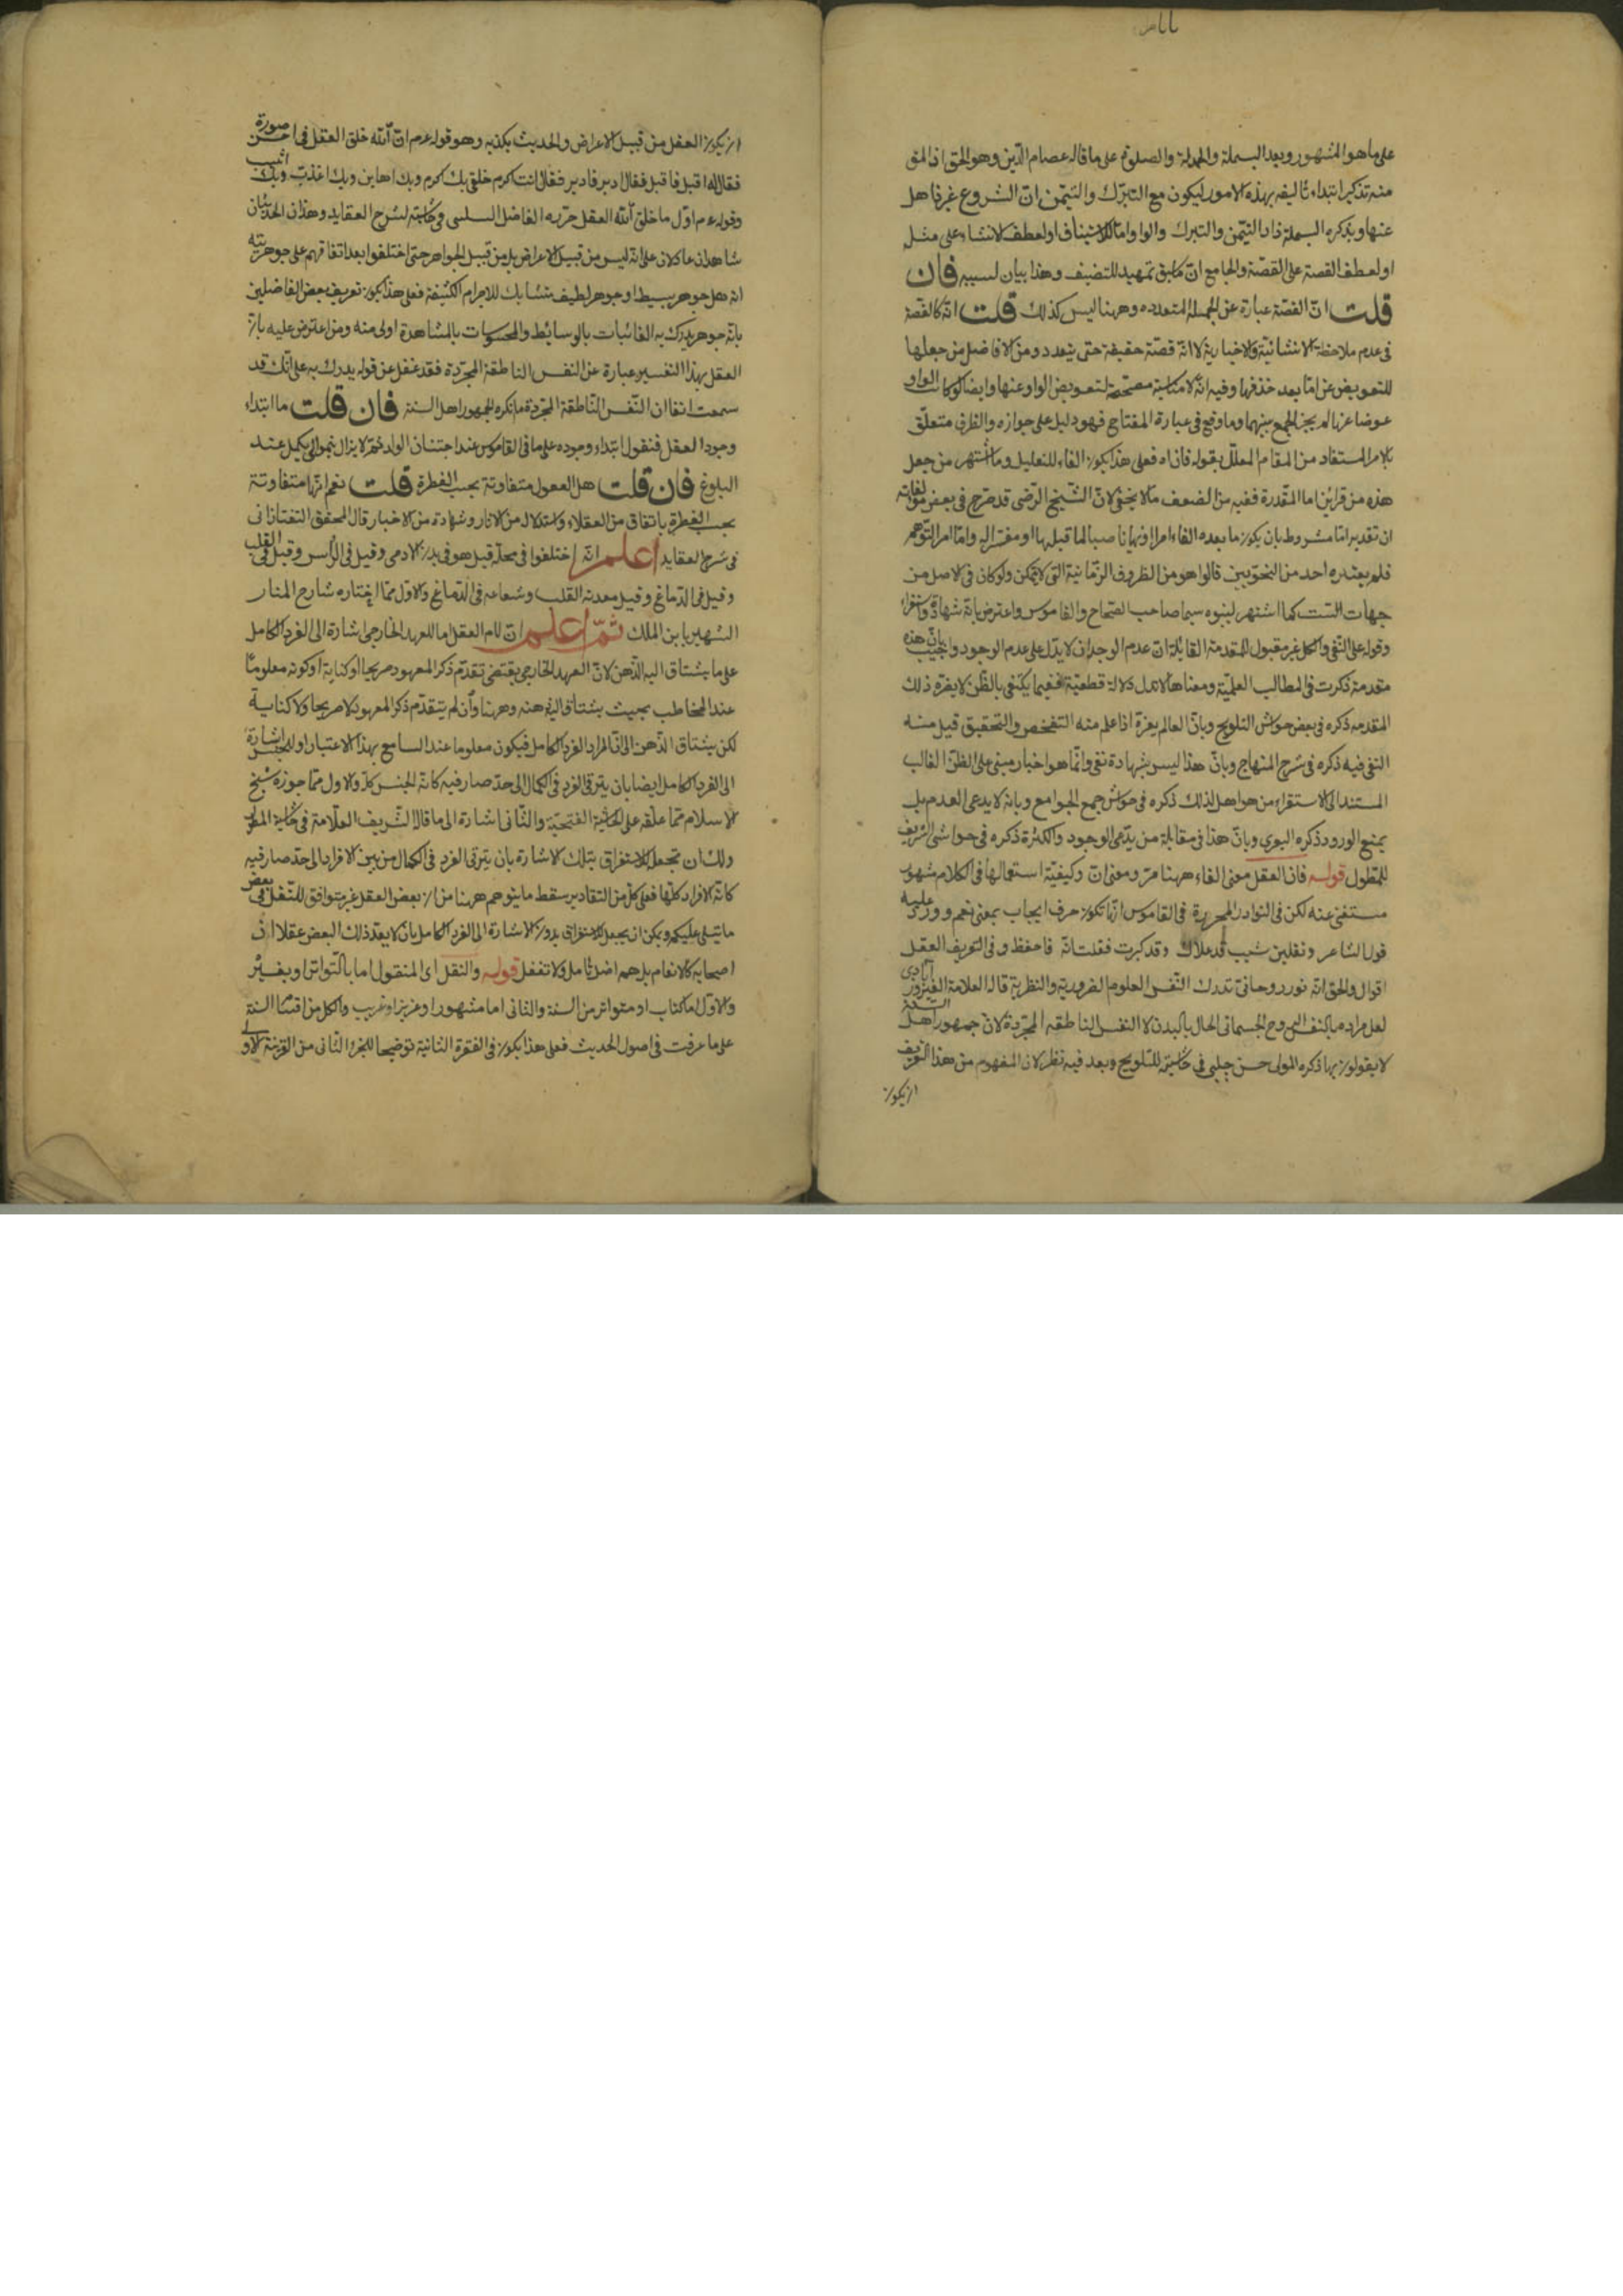 على ما هو المشهور وبعد البسملة والحمدلة والصلوة على ما قاله عصام الدين وهو الحق اذ المق
منه تذكير ابتداء تأليفه بهذه الامور ليكون مع التبرك والتيمن ان الشروع غير ذاهل
عنها وبذكره البسملة زاد التيمن والتبرك والواو اما للاستيناف او لعطف الانشاء على مثله
او لعطف القصة على القصة والجامع ان ما سبق تمهيد للتصنيف وهذا بيان لسببه فان
قلت ان القصة عبارة عن الجملة المتعدده وههنا ليس كذلك قلت انه كالقصة
فى عدم ملاحظة الانشائية والاخبارية لا انه قصة حقيقة حتى يتعدد ومن الافاضل من جعلها
للتعويض عن اما بعد حذفها وفيه انه لا مناسبة مصححة لتعويض الواو عنها وايضا لو كانت الواو
عوضا عنها لم يجز الجمع بينهما وما وقع فى عبارة المفتاح فهو دليل على جوازه والظرف متعلق
بالامر المستفاد من المقام المعلل بقوله فان اه فعلى هذا يكون الفاء للتعليل وما اشتهر من جعل
هذه من قراين اما المقدرة ففيه من الضعف ما لا يخفى لان الشيخ الرضى قد صرح فى بعض مؤلفاته
ان تقدير اما مشروط بان يكون ما بعده الفاء امرا او نهيا ناصبا لما قبلها او مفسرا له واما امر التوهم
فلم يعتبره احد من النحويين قالوا هو من الظروف الزمانية التى لا يتمكن ولو كان فى الاصل من
جهات الست كما اشتهر لبنوه سيما صاحب الصحاح والقاموس واعترض بانه شهادة واستقراء
وقوله على النفى والكل غير مقبول للمقدمة القائلة ان عدم الوجدان لا يدل على عدم الوجود واجيب بان هذه
مقدمة ذكرت فى المطالب العلمية ومعناها لا تدل دلالة قطعية ففيما يكتفى بالظن لا يضره ذلك
المقدمه ذكره فى بعض حواش التلويح وبان العالم بغرة اذا علم منه التفحص والتحقيق قبل منه
النفى فيه ذكره فى شرح المنهاج وبان هذا ليس بشهادة نفى وانما هو اخبار مبنى على الظن الغالب
المستند الى الاستقراء من هو اهل لذلك ذكره فى حواش جمع الجوامع وبانه لا يدعى العدم بل
يمنع الورود ذكره وبان هذا فى مقابلة من يدعى الوجود والكثرة ذكره فى حواشى الشريف
للمطول قوله فان العقل معنى الفاء ههنا مرّ ومعنى ان وكيفية استعمالها فى الكلام مشهور
مستغنى عنه لكن فى النوادر المحررة فى القاموس انها تكون حرف ايجاب بمعنى نعم وورد عليه
قول الشاعر ونقلين شيب قد علاك وقد كبرت فقلت انه فاحفظ وفى التعريف العقل
اقوال والحق انه نور روحانى تدرك النفس العلوم الضرورية والنظرية قاله العلامة الفيروز آبادى
لعل مراده بالنفس الروح الجسمانى الحال بالبدن لا النفس الناطقه المجردة لان جمهور اهل السنة
لا يقولون بها ذكره المولى حسن چلبى فى حاشيته للتلويح وبعد فيه نظر لان المفهوم من هذا التعريف
ان يكون
ان يكون العقل من قبيل الاعراض والحديث يكذبه وهو قوله عم ان الله خلق العقل فى احسن صورة
فقال له اقبل فاقبل فقال ادبر فادبر فقال انت اكرم خلقى بك اكرم وبك اهاين وبك اعذب وبك اثيب
وقوله عم اول ما خلق الله العقل حرره الفاضل السلسى فى حاشيته لشرح العقايد وهذان الحديثان
شاهدان عادلان على انه ليس من قبيل الاعراض بل من قبيل الجواهر حتى اختلفوا بعد اتفاقهم على جوهريته
انه هل جوهر بسيط او جوهر لطيف متشابك للاجرام الكثيفة فعلى هذا يكون تعريف بعض الفاضلين
بانه جوهر يدرك به الغائبات بالوسائط والمحسوسات بالمشاهدة اولى منه ومن اعترض عليه بان
العقل بهذا التفسير عبارة عن النفس الناطقة المجردة فقد غفل عن قوله يدرك به على انك قد
سمعت انفا ان النفس الناطقة المجردة ما نكره الجمهور اهل السنة فان قلت ما ابتداء
وجود العقل فنقول ابتداء وجوده على ما فى القاموس عند اجتنان الولد ثم لا يزال ينمو الى يكمل عند
البلوغ فان قلت هل العقول متفاوتة بحسب الفطرة قلت نعم انها متفاوتة
بحسب الفطرة باتفاق من العقلاء واستدلال من الآثار وشهادة من الاخبار قال المحقق التفتازانى
فى شرح العقايد اعلم انه اختلفوا فى محله قيل هو فى بدن الادمى وقيل فى الرأس وقيل فى القلب
وقيل فى الدماغ وقيل معدنه القلب وشعاعه فى الدماغ والاول مما اختاره شارح المنار
الشهير بابن الملك ثم اعلم ان لام العقل اما للعهد الخارجى اشارة الى الفرد الكامل
على ما يشتاق اليه الذهن لان العهد الخارجى يقتضى تقدم ذكر المعهود صريحا او كناية او كونه معلوما
عند المخاطب بحيث يشتاق اليه ذهنه وههنا وان لم يتقدم ذكر المعهود لا صريحا ولا كناية
لكن يشتاق الذهن الى ان المراد الفرد الكامل فيكون معلوما عند السامع بهذا الاعتبار او للجنس اشارة
الى الفرد الكامل ايضا بان يترقى الفرد فى الكمال الى حد صار فيه كانه الجنس كله والاول مما جوزه شيخ
الاسلام مما علقه على الحاشية الفتحية والثانى اشارة الى ما قاله الشريف العلامة فى حاشية المطول
ولك ان تجعل للاستغراق بتلك الاشارة بان يترقى الفرد فى الكمال من بين الافراد الى حد صار فيه
كانه الافراد كلها فعلى كل من التقادير سقط ما يتوهم ههنا من ان بعض العقل غير متوافق للنقل فى بعض
ما يتلى عليكم ويمكن ان يجعل للاستغراق بدون الاشارة الى الفرد الكامل بان لا يعد ذلك البعض عقلا اذ
اصحابه كالانعام بل هم اضل تأمل ولا تغفل قوله والنقل اى المنقول اما بالتواتر او بغير
والاول اما كتاب او متواتر من السنة والثانى اما مشهور او عزيز او غريب والكل من اقسام السنة
على ما عرفت فى اصول الحديث فعلى هذا يكون فى الفقرة الثانية توضيحا للجزء الثانى من القرينة الاولى